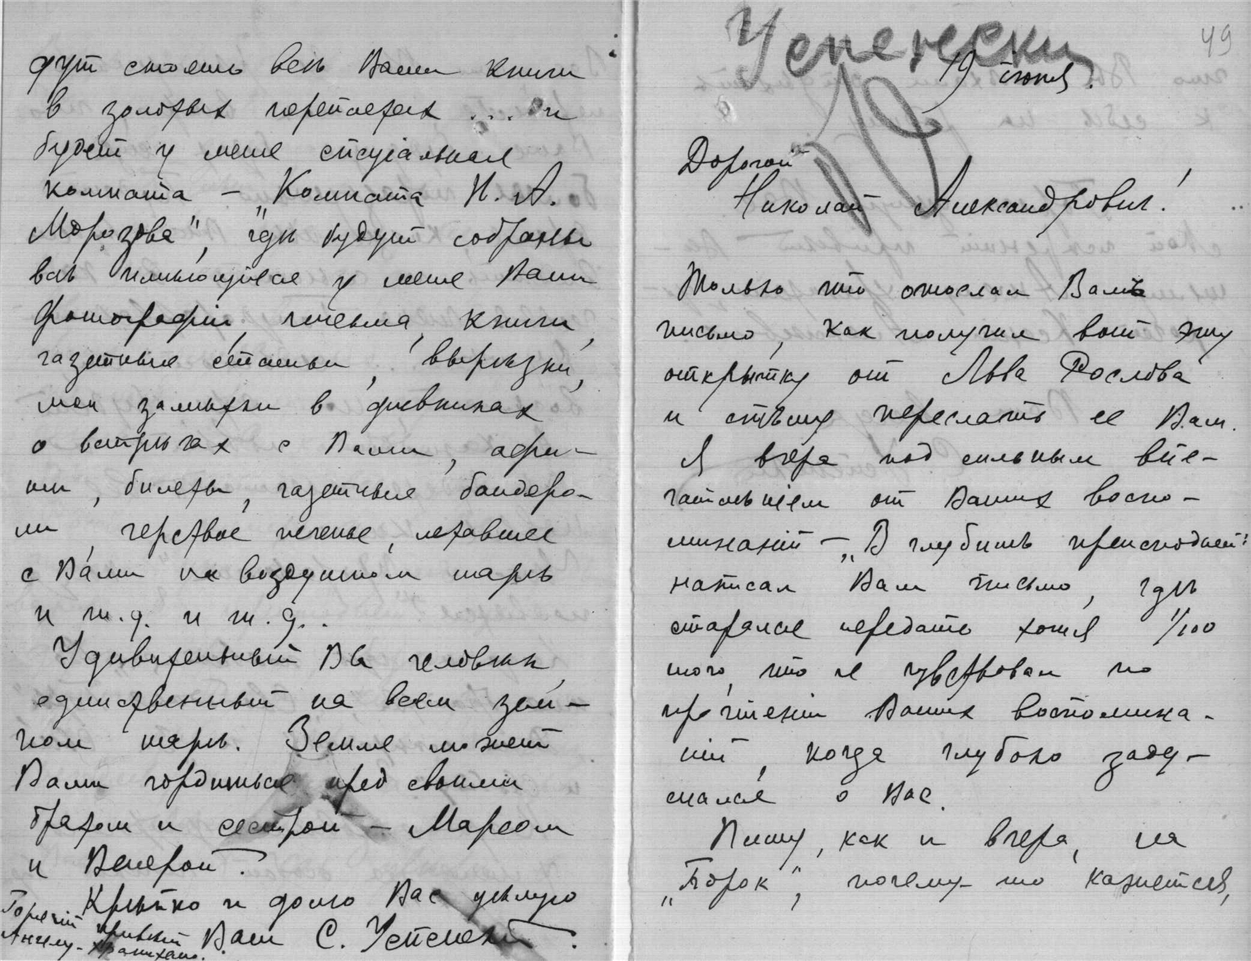 дут стоять всѣ Ваши книги
в золотых переплетах .... и
будет у меня специальная
комната – „Комната Н. А.
Морозова“, гдѣ будут собраны
всѣ имѣющіяся у меня Ваши
фотографіи, письма, книги,
газетныя статьи, вырѣзки,
мои замѣтки в дневниках
о встрѣчах с Вами, афи-
ши, билеты, газетныя бандеро-
ли, черствое печенье, летавшее
с Вами на воздушном шарѣ
и т. д. и т. д..
Удивительный Вы человѣк,
единственный на всем зем-
ном шарѣ. Земля может
Вами гордиться пред своими
братом и сестрой – Марсом
и Венерой.
Крѣпко и долго Вас цѣлую
Ваш С. Успенскій.
Горячій привѣт
Ангелу-хранителю.
Успенский
49
19 іюня.
Дорогой
Николай Александрович!
Только что отослал Вамъ
письмо, как получил вот эту
открытку от Льва
и спѣшу переслать ее Вам.
Я вчера под сильным впе-
чатлѣнием от Ваших воспо-
минаній – „В глубинѣ преисподней“
написал Вам письмо, гдѣ
старался передать хотя 1/100
того, что я чувствовал по
прочтеніи Ваших воспомина-
ній, когда глубоко заду-
мался о Вас.
Пишу, как и вчера, на
„Борок“, почему-то кажется,